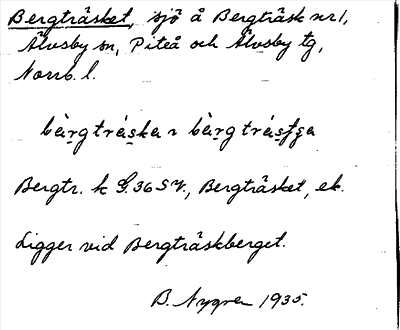 Bergträsket, sjö å Bergträsk nr 1,
Älvsby sn, Piteå och Älvsby tg,
Norrb. l.
Bergtr. k G. 36 SV., Bergträsket, ek.
Ligger vid Bergträskberget.
B. Nygren 1935.